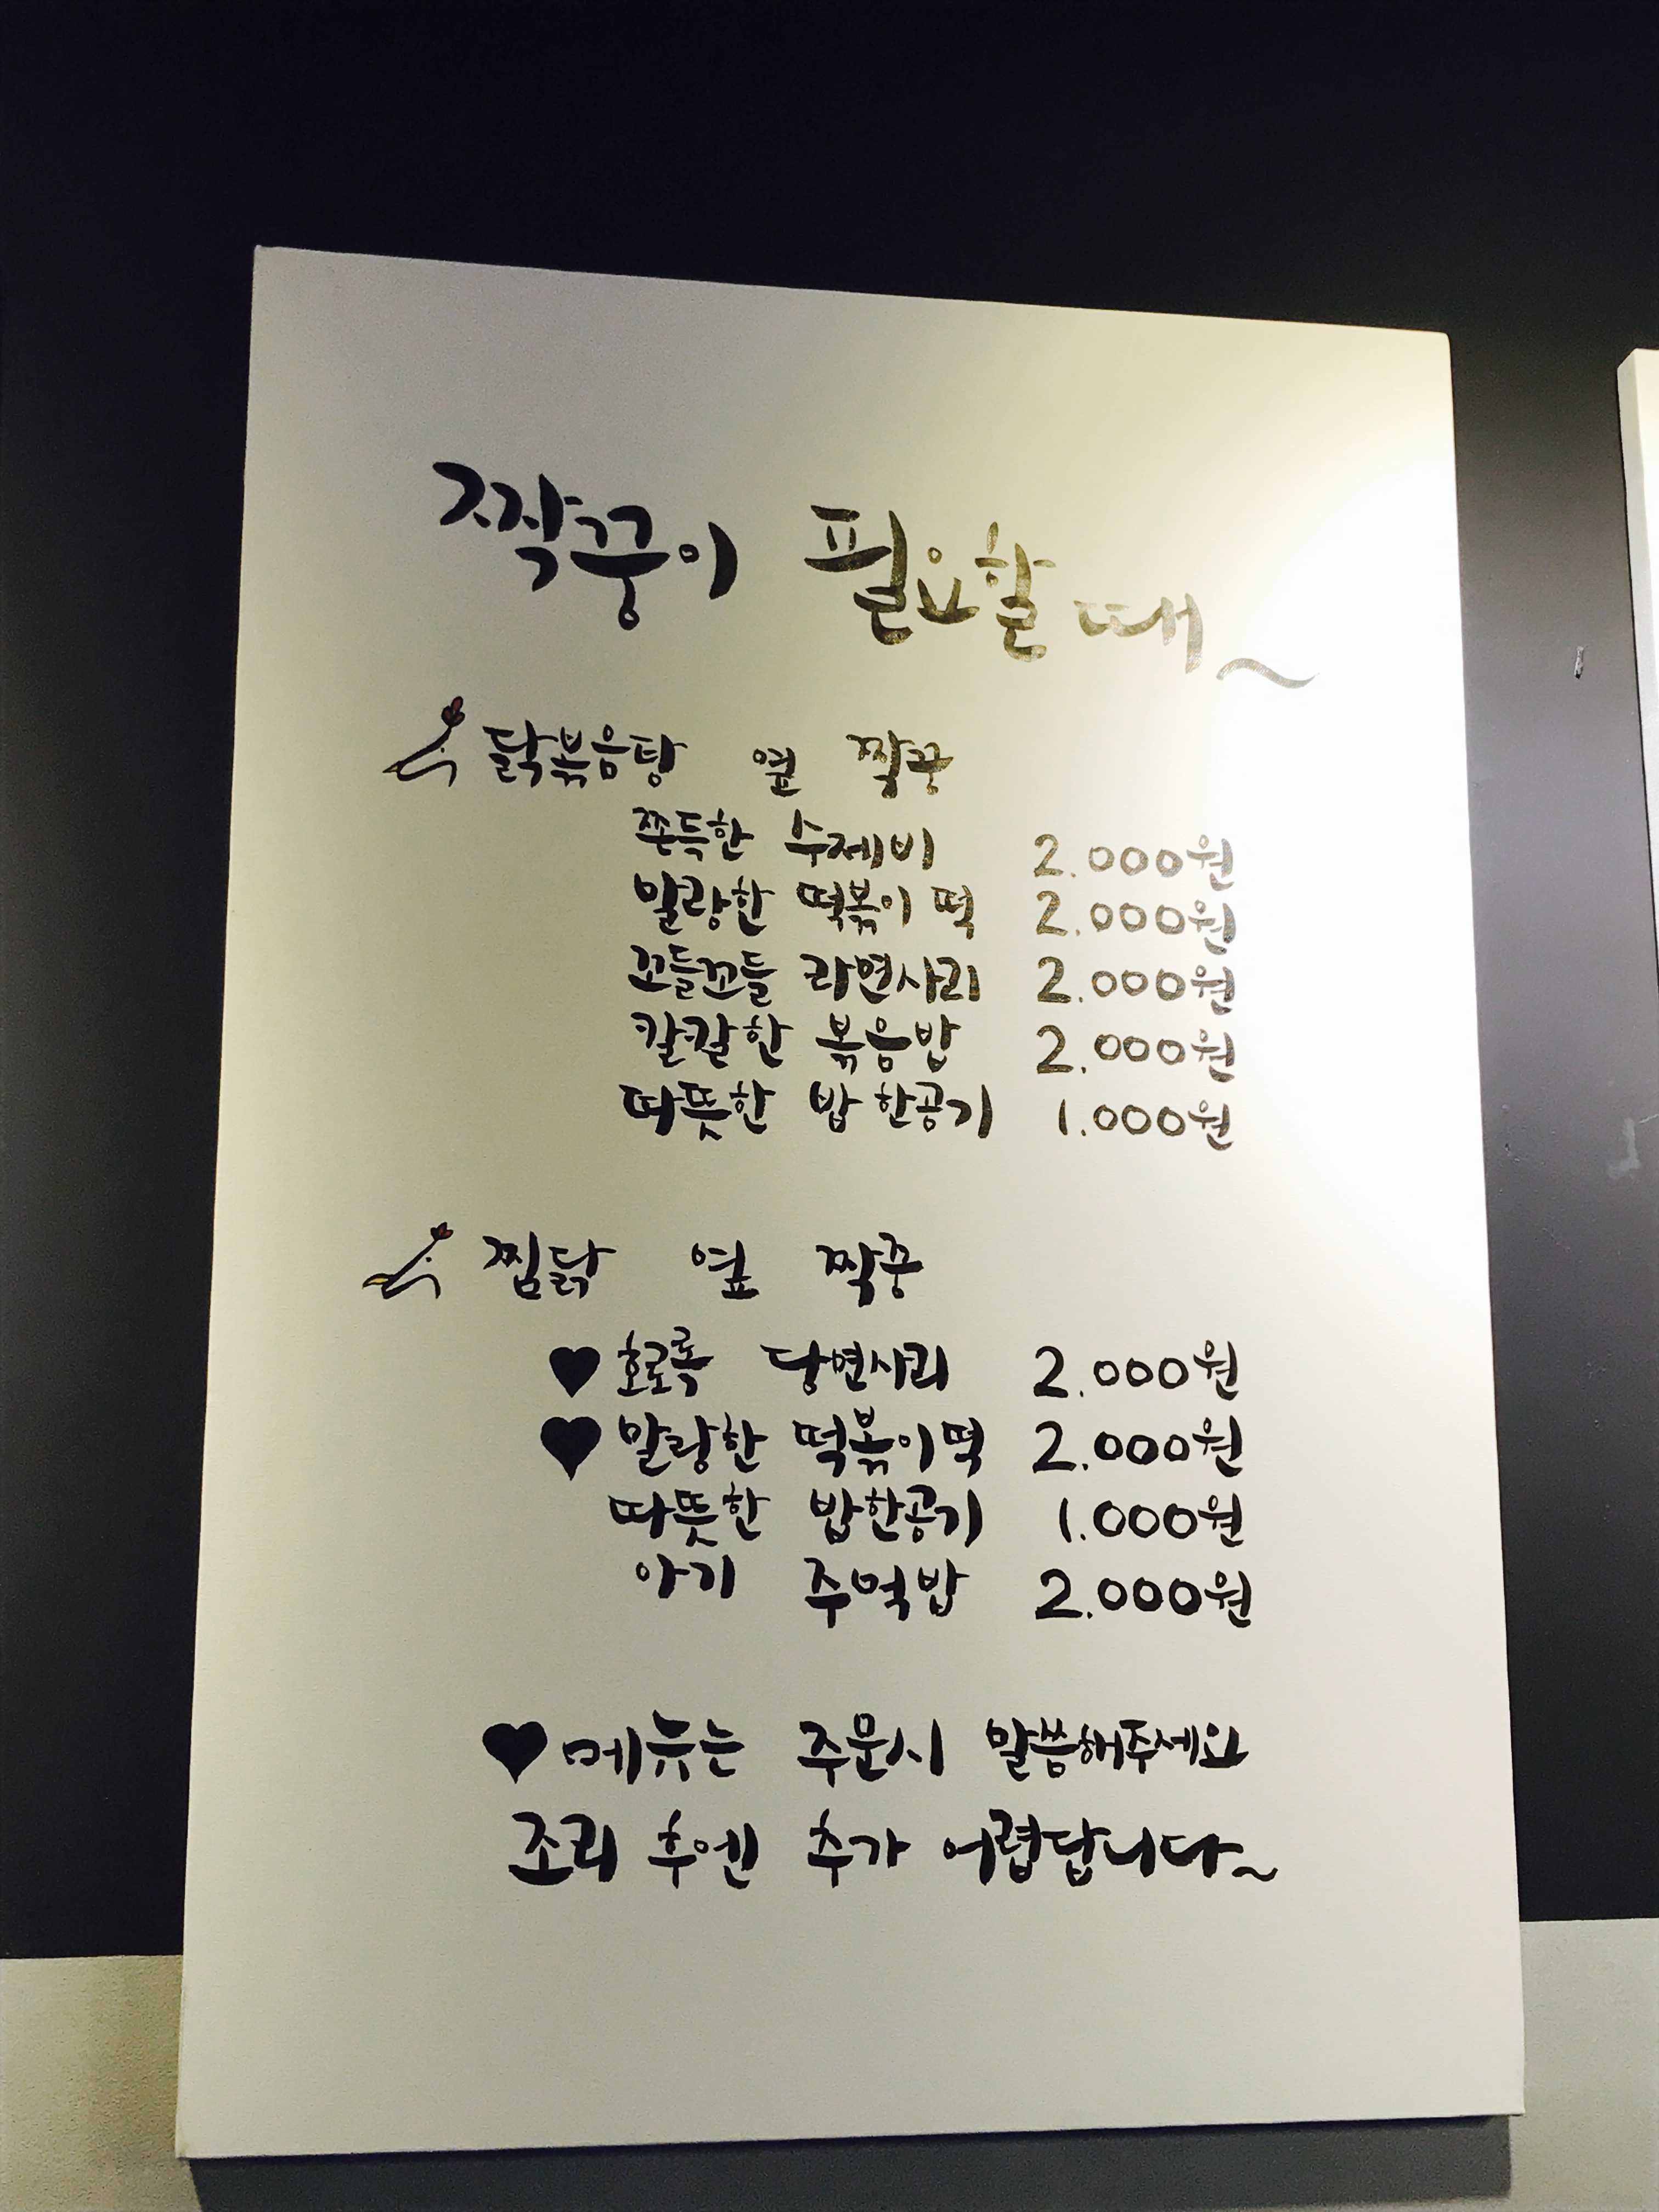 짝꿍이 필요할 때~
닭볶음탕 옆 짝꿍
쫀득한 수제비 2.000원
말랑한 떡볶이 떡 2.000원
꼬들꼬들 라면사리 2.000원
칼칼한 볶음밥 2.000원
따뜻한 밥 한공기 1.000원
찜닭 옆 짝꿍
♥ 호로록 당면사리 2.000원
♥ 말랑한 떡볶이떡 2.000원
따뜻한 밥한공기 1.000원
아기 주먹밥 2.000원
♥ 메뉴는 주문시 말씀해주세요
조리 후엔 추가 어렵답니다~